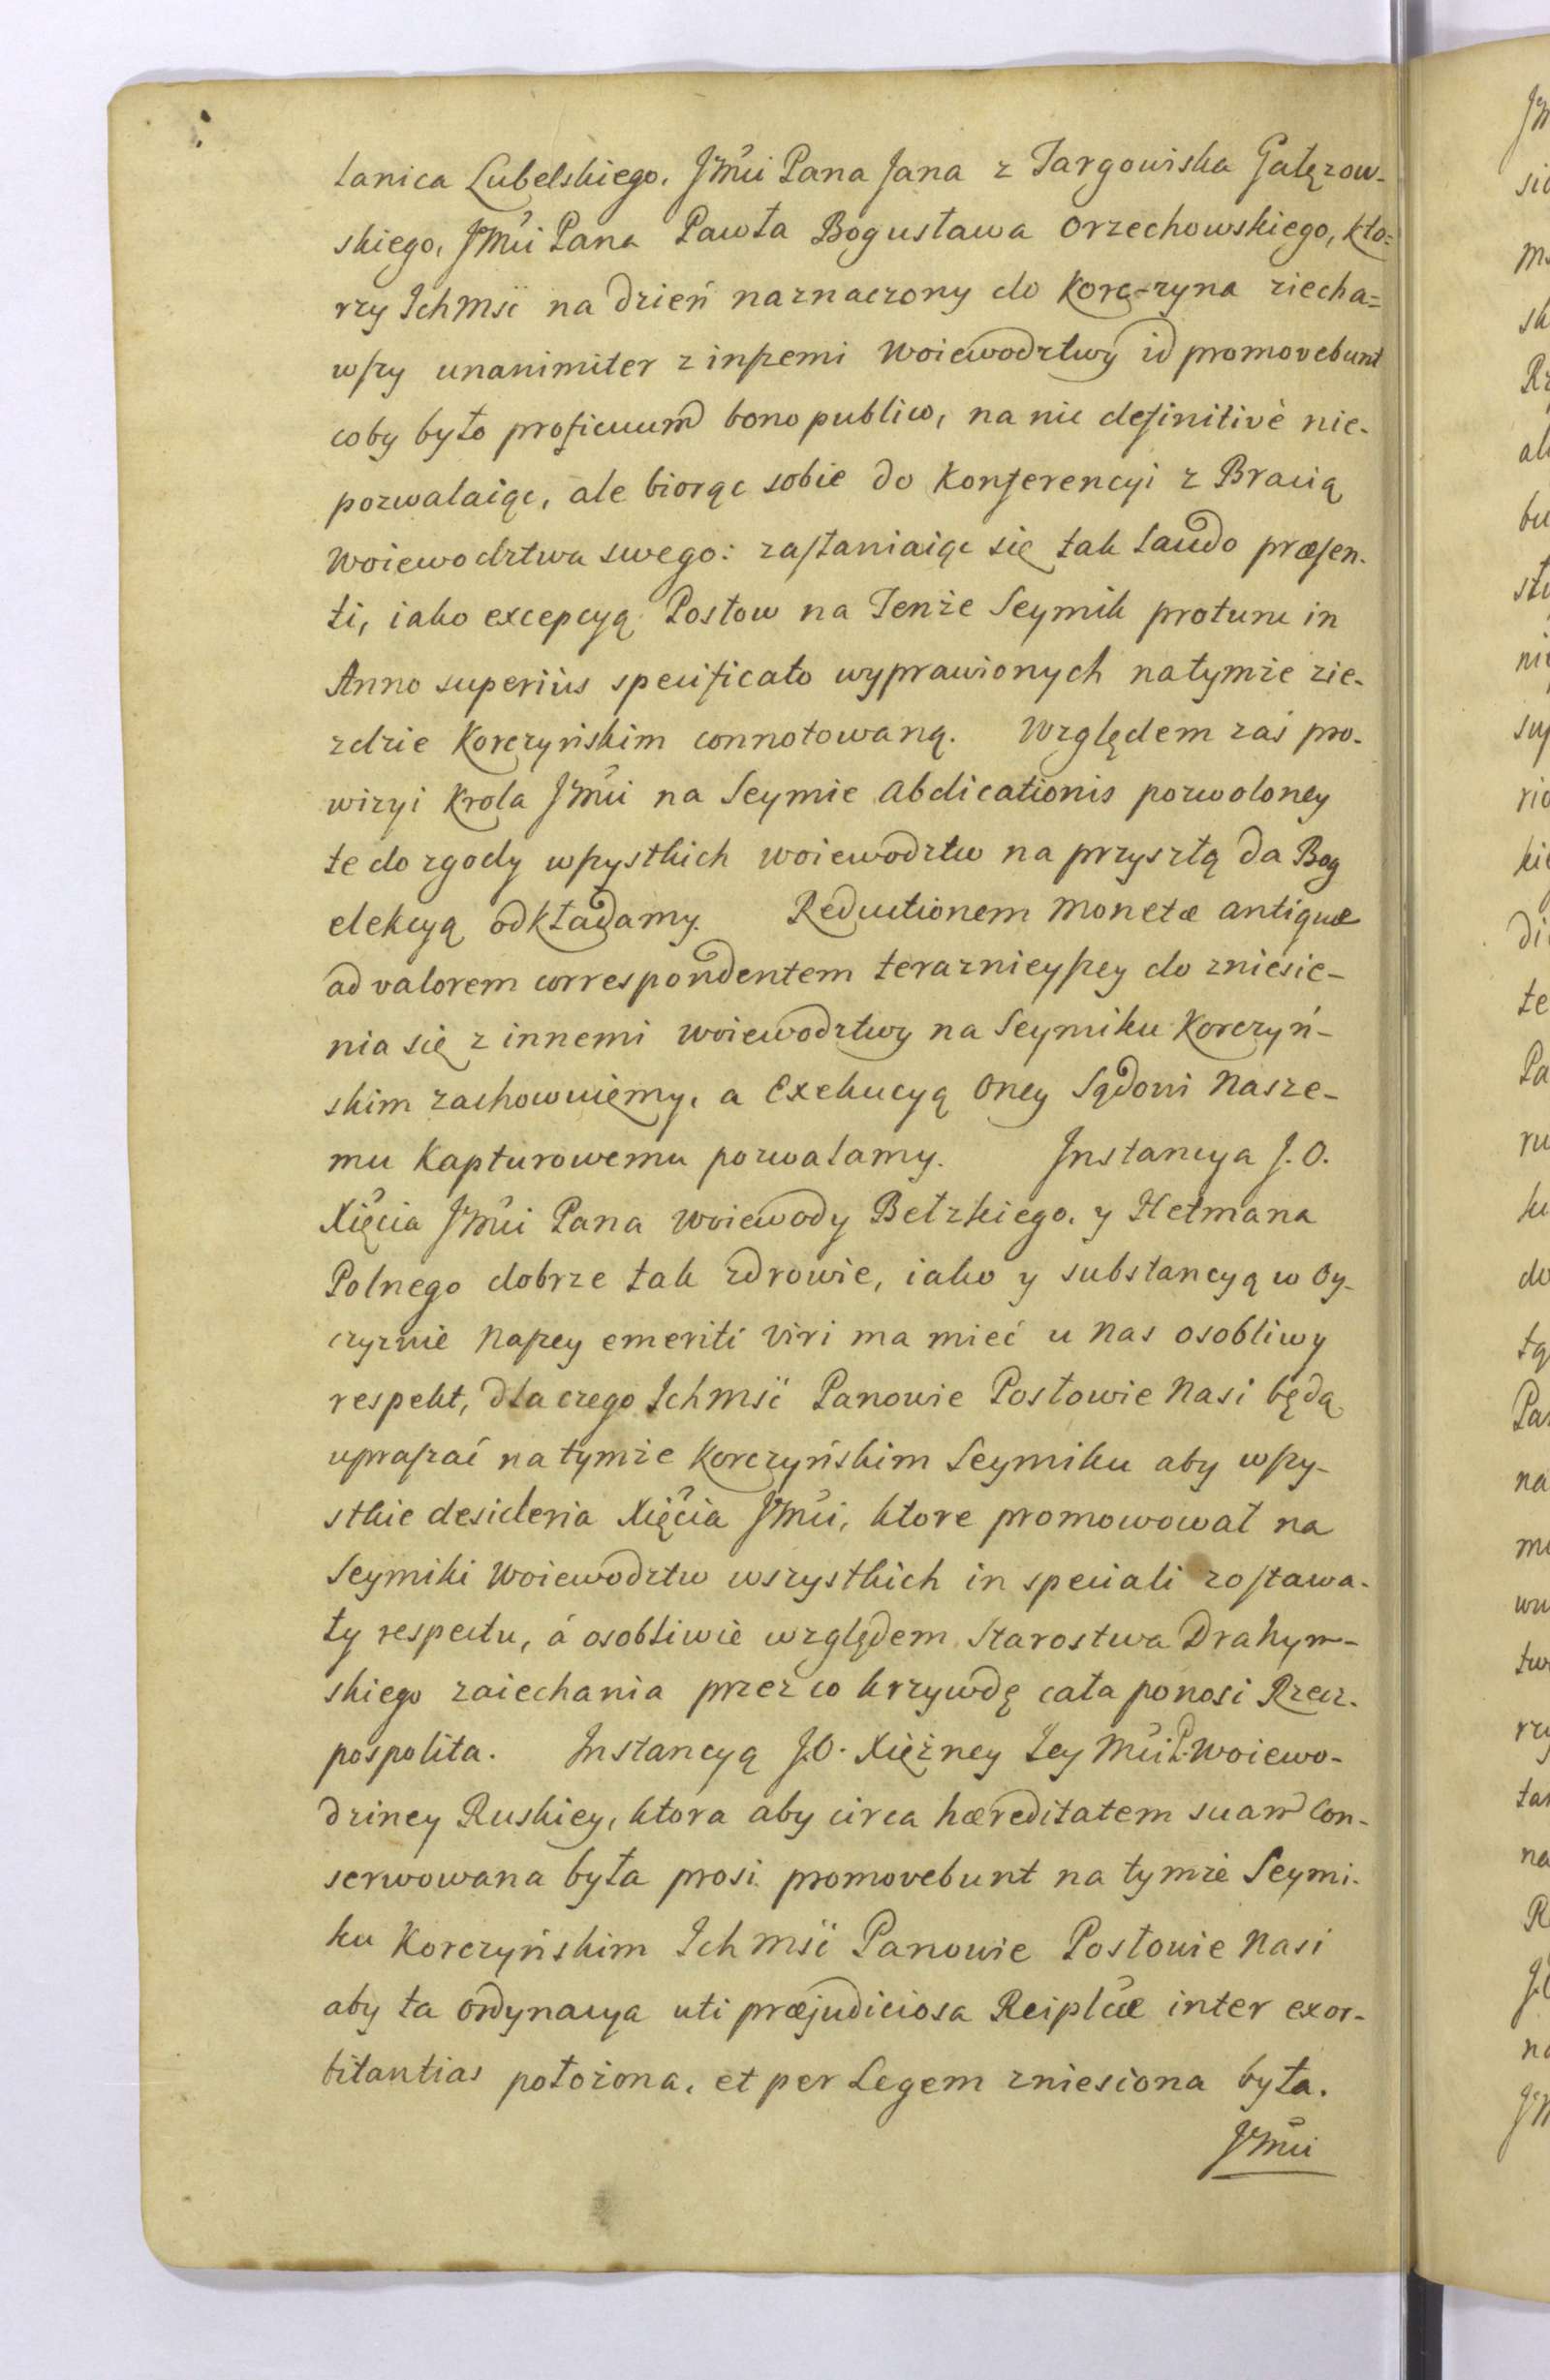 lanica Lubelskiego. JMci Pana Jana z Targowiska Gałęzow-
skiego, JMci Pana Pawła Bogusława Orzechowskiego, kto=
rzy Ichmsć na dzień naznaczony do Korczyna ziecha=
wszy unanimiter z inszemi Woiewodztwy id promovebunt
coby było proficuum bono publico, na nic definitivè nie-
pozwalaiąc, ale biorąc sobie do Konferencyi z Bracią
Woiewodztwa swego: zastaniaiąc się tak Laudo præsen-
ti, iako excepcyą Posłow na Tenże Seymik protunc in
Anno superiùs specificato wyprawionych na tymże zie-
zdzie Korczyńskim connotowaną. Względem zaś pro-
wizyi Krola JMci na Seymie Abdicationis pozwoloney
te do zgody wszystkich woiewodztw na przyszłą da Bog
elekcyą odkładamy. Reductionem Monetæ antiquæ
ad valorem correspondentem teraznieyszey do zniesie-
nia się z innemi woiewodztwy na Seymiku Korczyń-
skim zachowuiemy, a Exekucyą Oney Sądowi Nasze-
mu Kapturowemu pozwalamy. Instancya J.O.
Xięcia JMci Pana Woiewody Bełzkiego, y Hetmana
Polnego dobrze tak zdrowie, iako y substancyą w Oy-
czyznie Naszey emeriti Viri ma mieć u Nas osobliwy
respekt, dla czego Ichmść Panowie Posłowie Nasi będą
upraszać na tymże Korczyńskim Seymiku aby wszy-
stkie desideria Xięcia JMci, ktore promowował na
Seymiki Woiewodztw wszystkich in speciali zostawa-
ły respectu, á osobliwie względem Starostwa Drahym-
skiego zaiechania przez co krzywdę cała ponosi Rzecz-
pospolita. Instancyą J.O. Xiężney Jey Mci P. Woiewo-
dziney Ruskiey, ktora aby circa hæreditatem suam Con-
serwowana była prosi promovebunt na tymże Seymi-
ku Korczyńskim Ichmść Panowie Posłowie Nasi
aby ta Ordynacya uti præjudiciosa Reiplcæ inter exor-
bitantias położona, et per Legem zniesiona była.
JMci